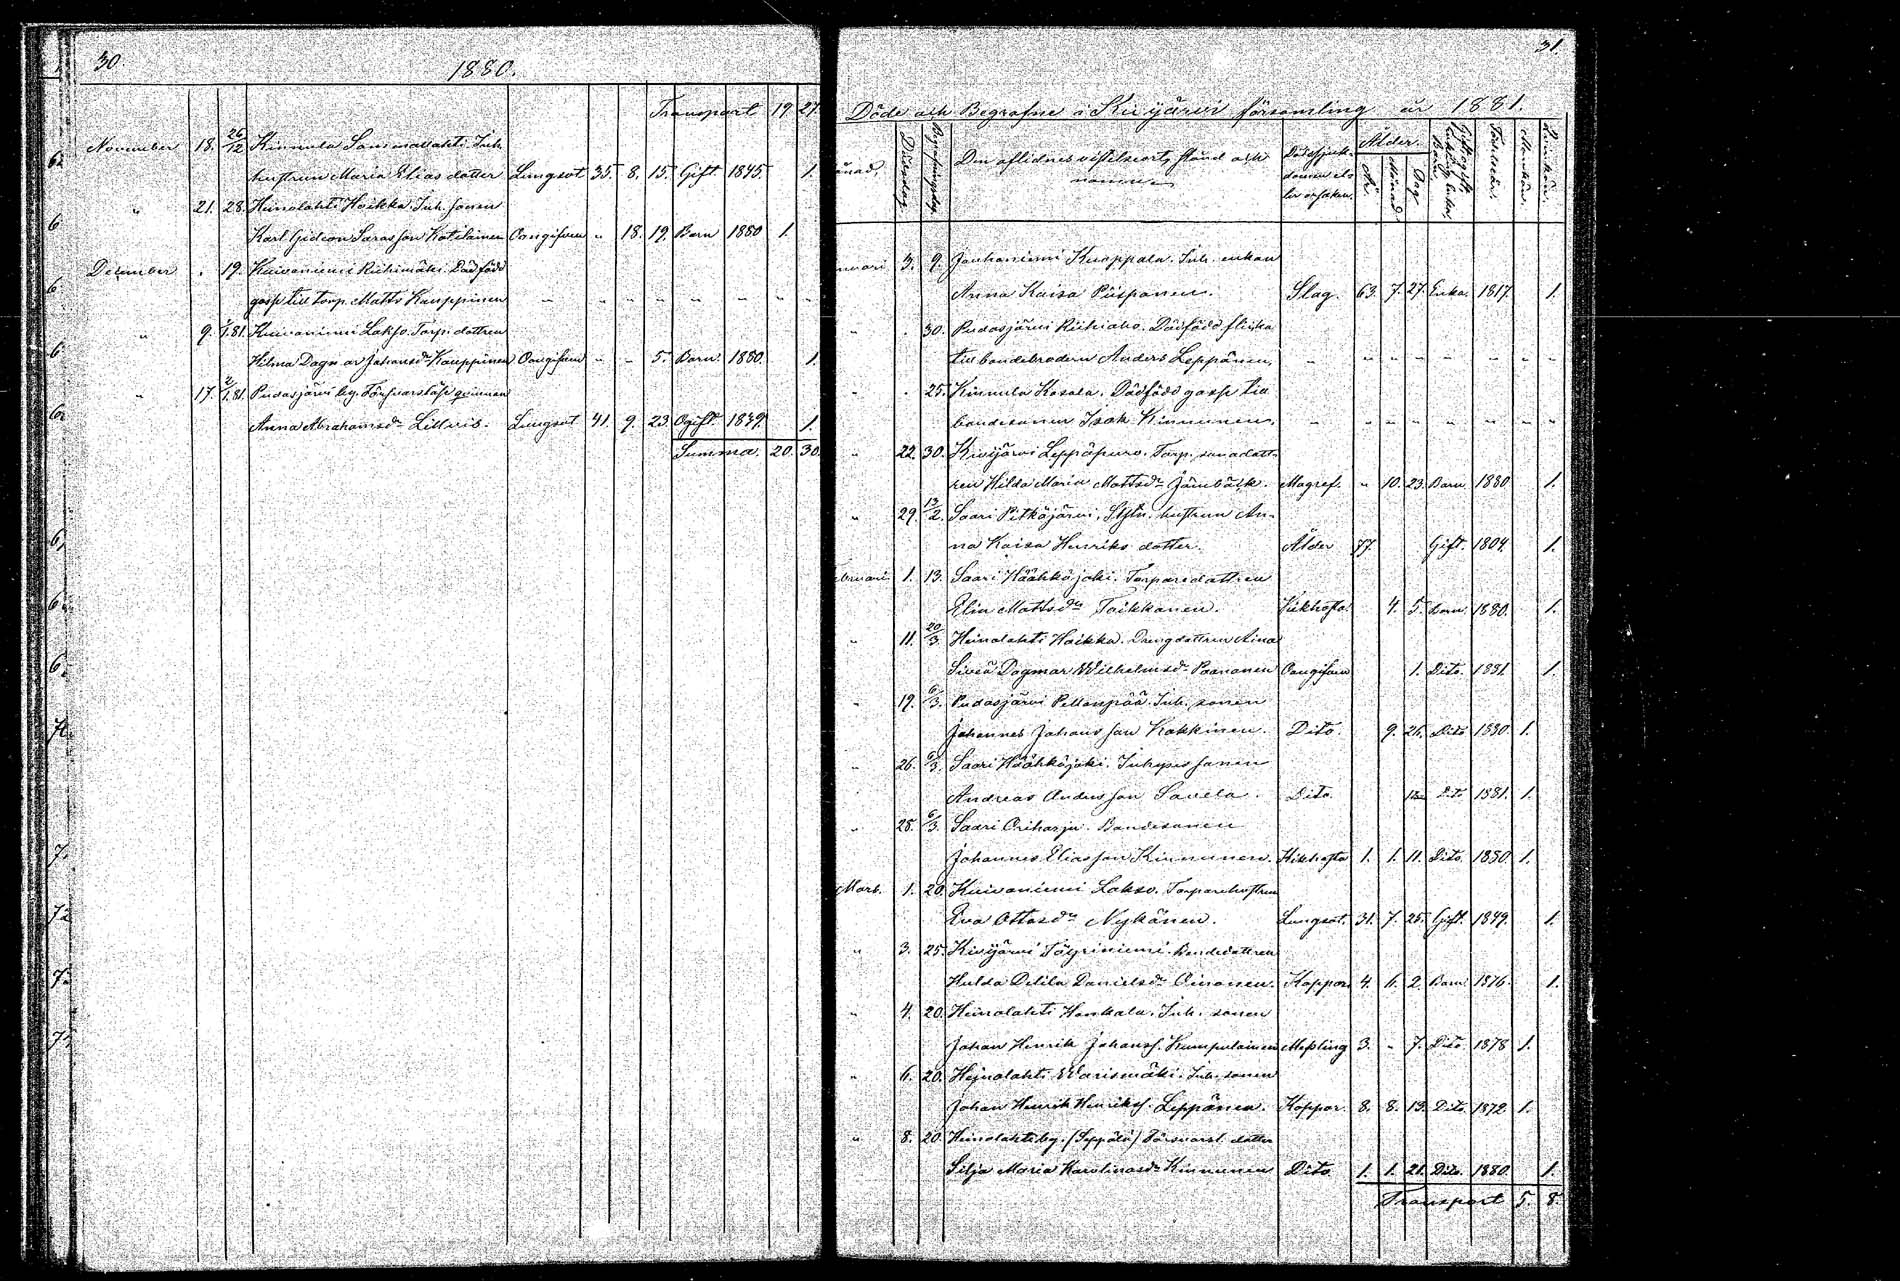 30.
1880.
Transport 19 27.
November 18. 26/12 Kinnula Sammalahti Inh.
hustrun Maria Elias dotter Lungsot 35. 8. 15. Gift 1845. 1.
" 21. 28. Heinolahti Hoikka. Inh. sonen
Karl Gideon Sarasson Kotilainen Oangifven " 18. 19. Barn 1880 1.
December . 19. Kuivaniemi Riihimäki. Dödfödd
gosse till torp. Matts Kauppinen " " " " " " "
" 9. 1/1.81. Kuivaniemi Lakso. Torp. dottren
Hilma Dagmar Johansdr Kauppinen Oangifven " " 5. Barn. 1880. 1.
" 17. 2/1.81. Pudasjärvi by. Försvarslösa qvinnan
Anna Abrahamsdr Litteris. Lungsot 41. 9. 23. Ogift. 1839. 1.
Summa. 20. 30.
31.
Döde och Begrafne i Kivijärvi församling år 1881.
Månad. Dödsdag. Begrafningsdag. Den aflidnes vistelseort, stånd och
namn. Dödssjuk-
domen el-
ler orsaken. Ålder. År. Månad. Dag. Födelseår. Mankön. Qvinkön.
nuari 3. 9. Jouhaniemi Knoppala. Inh. enkan
Anna Kaisa Piispanen. Slag. 63. 7. 27. Enka. 1817. 1.
" . 30. Pudasjärvi Riihiaho. Dödfödd flicka
till bondebrodern Anders Leppänen. " " " " " " " "
" . 25. Kinnula Kosola. Dödfödd gosse till
bondesonen Isak Kinnunen. " " " " " " " "
" 22. 30. Kivijärvi Leppäpuro. Torp. sonadott-
ren Hilda Maria Mattsdr Jämbäck. Magref. " 10. 23. Barn. 1880 1.
" 29. 13/2. Saari Pitkäjärvi. Sytn. hustrun An-
na Kaisa Henriks dotter. Ålder 77. Gift. 1804. 1.
ebruari 1. 13. Saari Häähköjoki. Torparedottren
Elin Mattsdr Toikkanen. Kikhosta. 4. 5. Barn. 1880. 1.
" 11. 20/3. Heinolahti Hoikka. Drengdottren Aina
Siviä Dagmar Wilhelmsdr Paananen Oangifven 1. Dito. 1881. 1.
" 19. 6/3. Pudasjärvi Pellonpää. Inh. sonen
Johannes Johansson Kokkinen. Dito. 9. 26. Dito 1880 1.
" 26. 6/3. Saari Häähköjoki. Inhyses sonen
Andreas Andersson Savela. Dito. Dito 1881. 1.
" 28. 6/3. Saari Oriharju. Bondesonen
Johannes Eliasson Kinnunen. Kikhosta 1. 1. 11. Dito. 1880 1.
Mars. 1. 20. Kuivaniemi Lakso. Torparehustrun
Eva Ottosdr Nykänen. Lungsot. 31. 7. 25. Gift. 1849. 1.
" 3. 25. Kivijärvi Töyriniemi. Bondedottren
Hulda Delila Danielsdr Oinonen. Koppor 4. 6. 2. Barn. 1876. 1.
" 4. 20. Heinolahti Honkala. Inh. sonen
Johan Henrik Johanss. Kumpulainen Messling 3. " 7. Dito. 1878 1.
" 6. 20. Heinolahti Warismäki. Inh. sonen
Johan Henrik Henrikss. Leppänen. Koppor. 8. 8. 13. Dito. 1872 1.
" 8. 20. Heinolahti by. (Seppälä) Försvarsl. dotter
Silja Maria Karolinasdr Kinnunen Dito 1. 1. 21. Dito. 1880. 1.
Transport 5. 8.